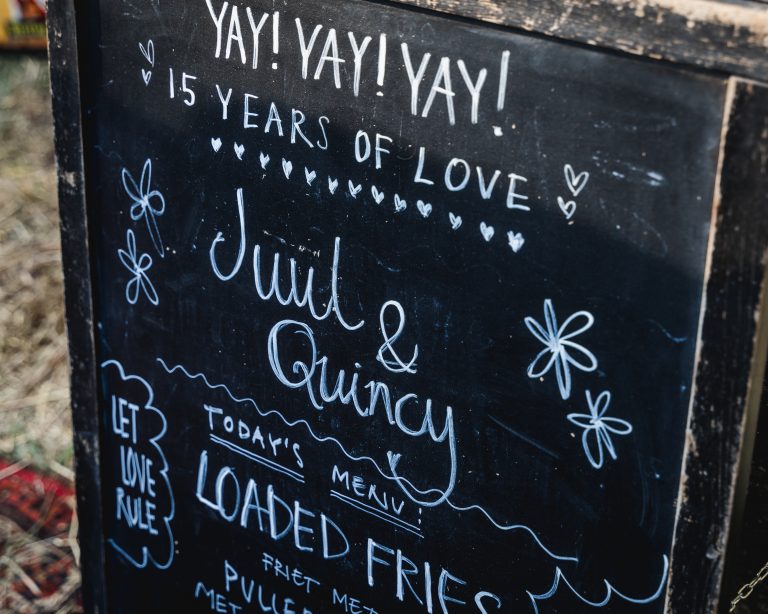 YAY! YAY! YAY!
15 YEARS OF LOVE
Juul &
Quincy
LET
LOVE
RULE
TODAY'S MENU:
LOADED FRIES
FRIET MET
MET